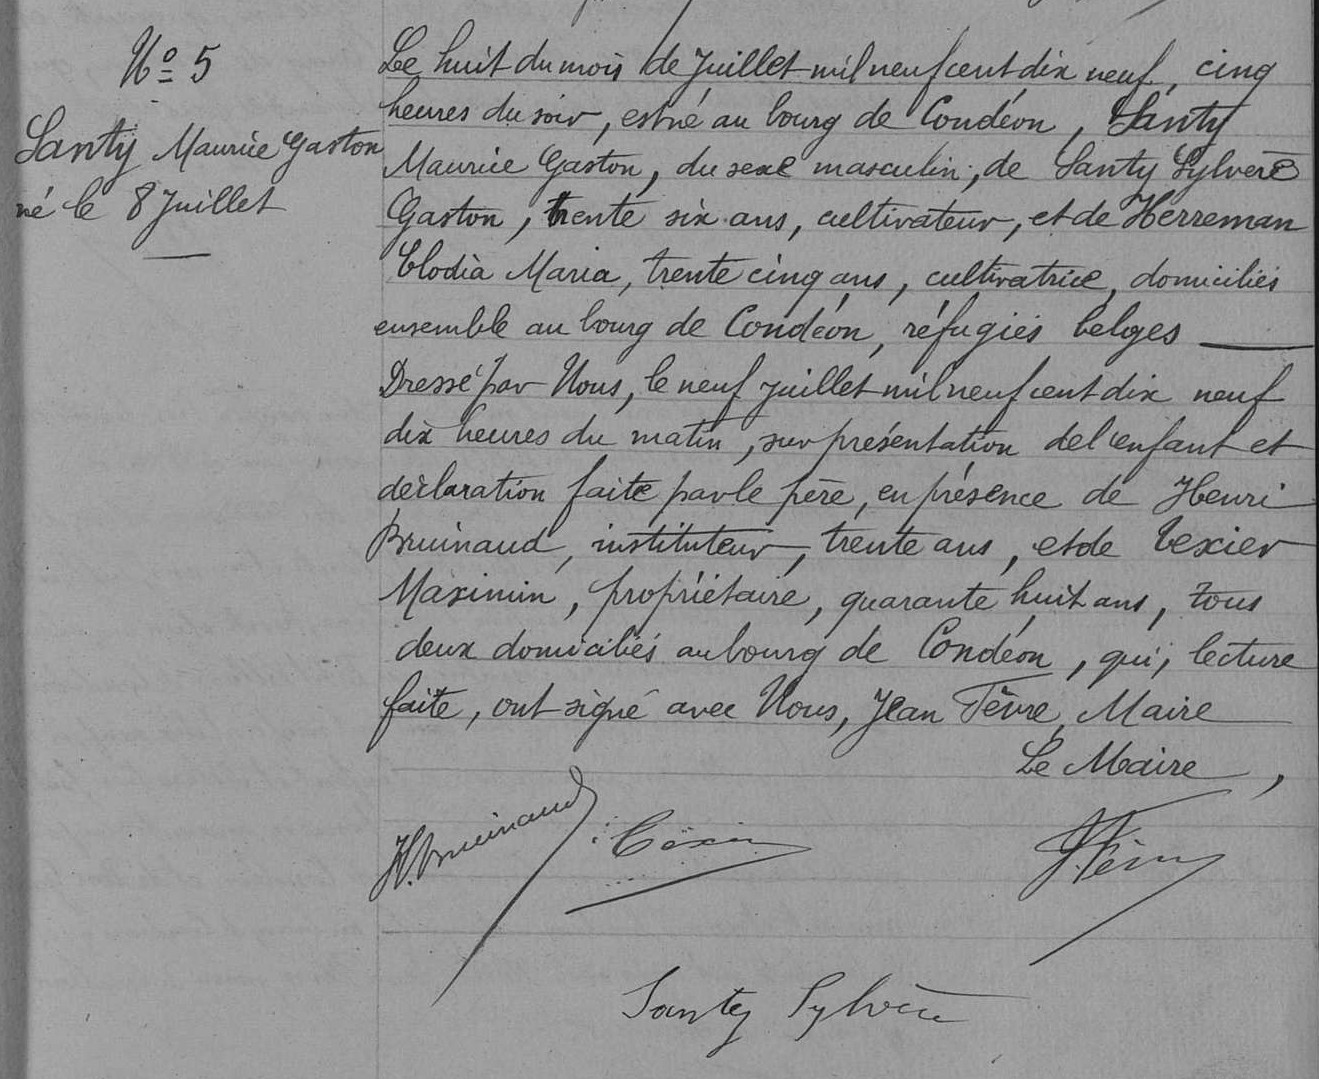 No 5
Santy Maurice Gaston
né le 8 Juillet
Le huit du mois de Juillet mil neuf cent dix neuf, cinq
heures du soir, est né au bourg de Condéon, Santy
Maurice Gaston, du sexe masculin, de Santy Sylvère
Gaston, trente six ans, cultivateur, et de Herreman
Clodia Maria, trente cinq ans, cultivatrice, domiciliés
ensemble au bourg de Condéon, réfugiés belges
Dressé par Nous, le neuf juillet mil neuf cent dix neuf
dix heures du matin, sur présentation de l'enfant et
déclaration faite par le père, en présence de Henri
Bruinaud, instituteur, trente ans, et de Texier
Maximin, propriétaire, quarante huit ans, tous
deux domiciliés au bourg de Condéon, qui, lecture
faite, ont signé avec Nous, Jean Fèvre, Maire
Le Maire,
H. Bruinaud
Santy Sylvère